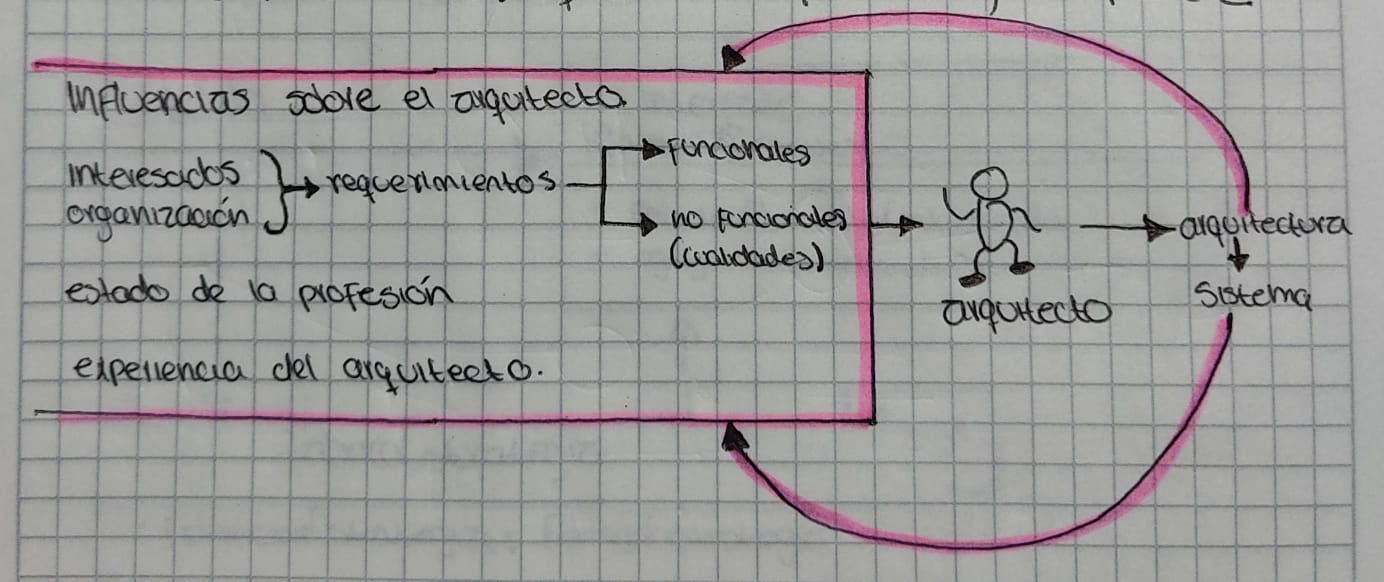 Influencias sobre el arquitecto.
interesados
organización
requerimientos
funcionales
no funcionales
(cualidades)
estado de la profesión
experiencia del arquitecto.
arquitecto
arquitectura
sistema